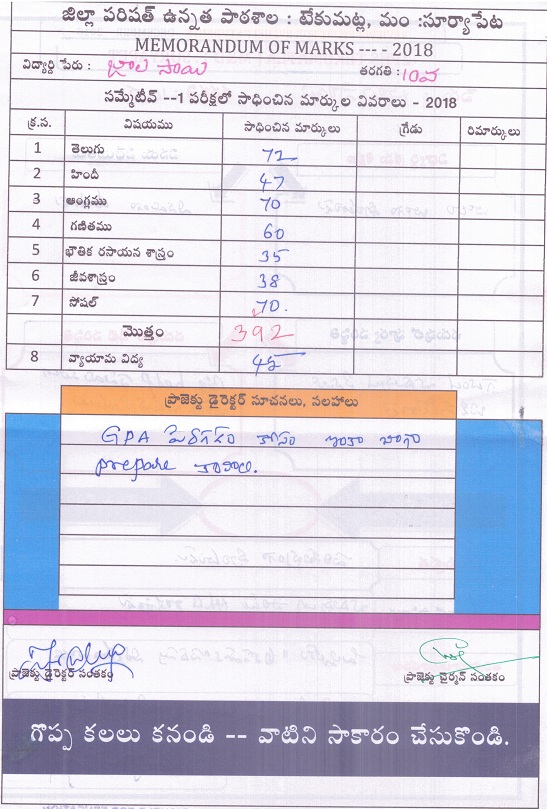 జిల్లా పరిషత్ ఉన్నత పాఠశాల : టేకుమట్ల, మం :సూర్యాపేట
MEMORANDUM OF MARKS --- - 2018
విద్యార్థి పేరు : సాయి తరగతి : 10వ
సమ్మేటీవ్ --1 పరీక్షలో సాధించిన మార్కుల వివరాలు - 2018
క్ర.స. విషయము సాధించిన మార్కులు గ్రేడు రిమార్కులు
1 తెలుగు 72
2 హిందీ 47
3 ఆంగ్లము 70
4 గణితము 60
5 భౌతిక రసాయన శాస్త్రం 35
6 జీవశాస్త్రం 38
7 సోషల్ 70.
మొత్తం 392
8 వ్యాయామ విద్య 45
ప్రాజెక్టు డైరెక్టర్ సూచనలు, సలహాలు
GPA పెరగడం కోసం ఇంకా బాగా
prepare కావాలి.
ప్రాజెక్టు డైరెక్టర్ సంతకం ప్రాజెక్టు చైర్మన్ సంతకం
గొప్ప కలలు కనండి -- వాటిని సాకారం చేసుకొండి.